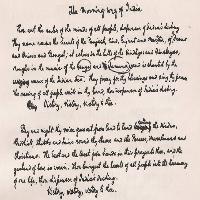 The Morning Song of India
Thou art the ruler of the minds of all people, dispenser of India's destiny.
Thy name rouses the hearts of the Punjab, Sind, Gujrat and Maratha, of Dravid
and Orissa and Bengal; it echoes in the hills of the Vindhyas and Himalayas,
mingles in the music of the and and is chanted by the
waves of the Indian Sea. They pray for thy blessings and sing thy praise.
The saving of all people waits in thy hand, thou dispenser of India's destiny.
Victory, victory, victory to thee.
Day and night thy voice goes out from land to land calling the Hindus,
Buddhists, Sikhs and Jains round thy throne and the Parsees, Mussalmans and
Christians. The East and the West join hands in their prayer to thee, and the
garland of love is woven. Thou bringest the hearts of all people into the harmony
of one life, thou dispenser of India's destiny.
Victory, victory, victory to thee.